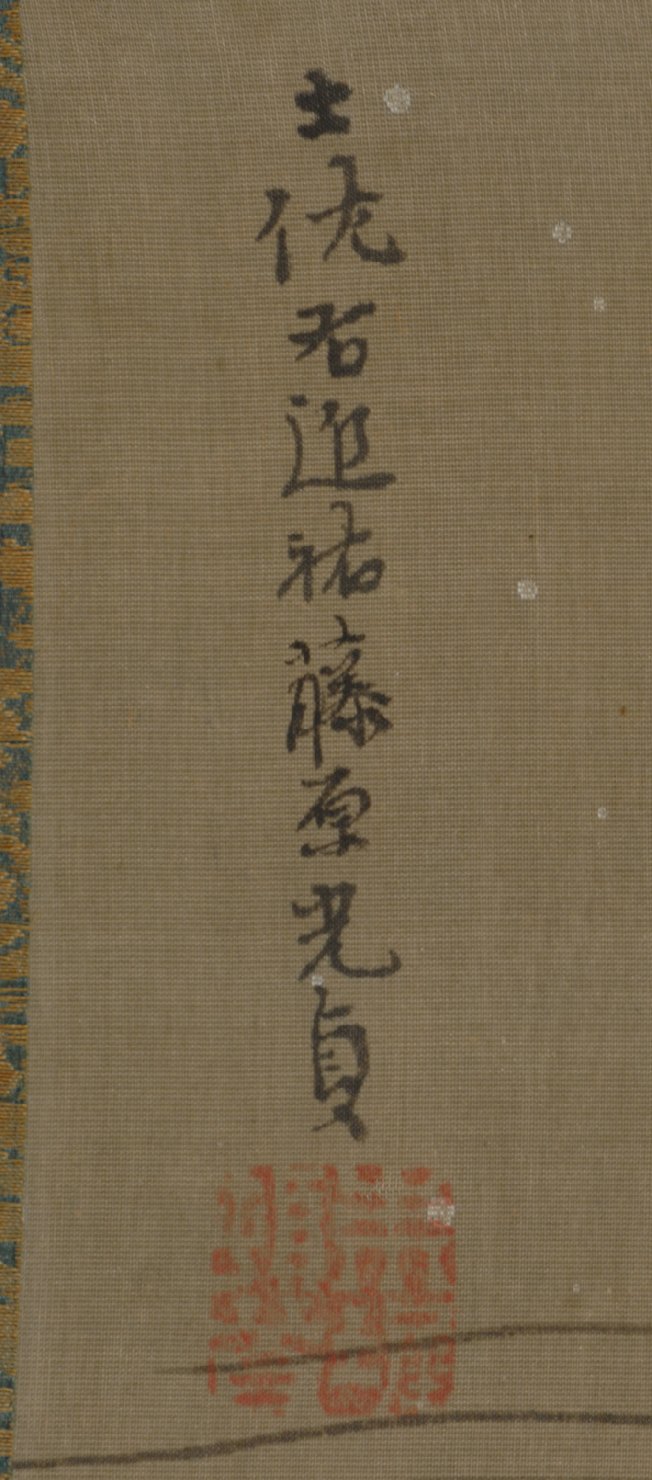 土佐右近祐藤原光貞